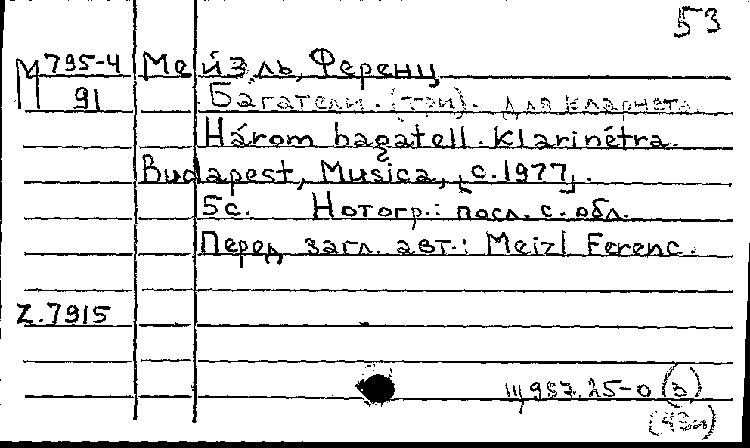 53
М 795-4 Мейзль, Ференц
91 Багатели. (три). для кларнета.
Három bagatell. Klarinétra.
Budapest, Musica, [c.1977].
5с. Нотогр.: посл. с. обл.
Перед загл. авт.: Meizl Ferenc.
Z.7915
Щ987.25-0(3)